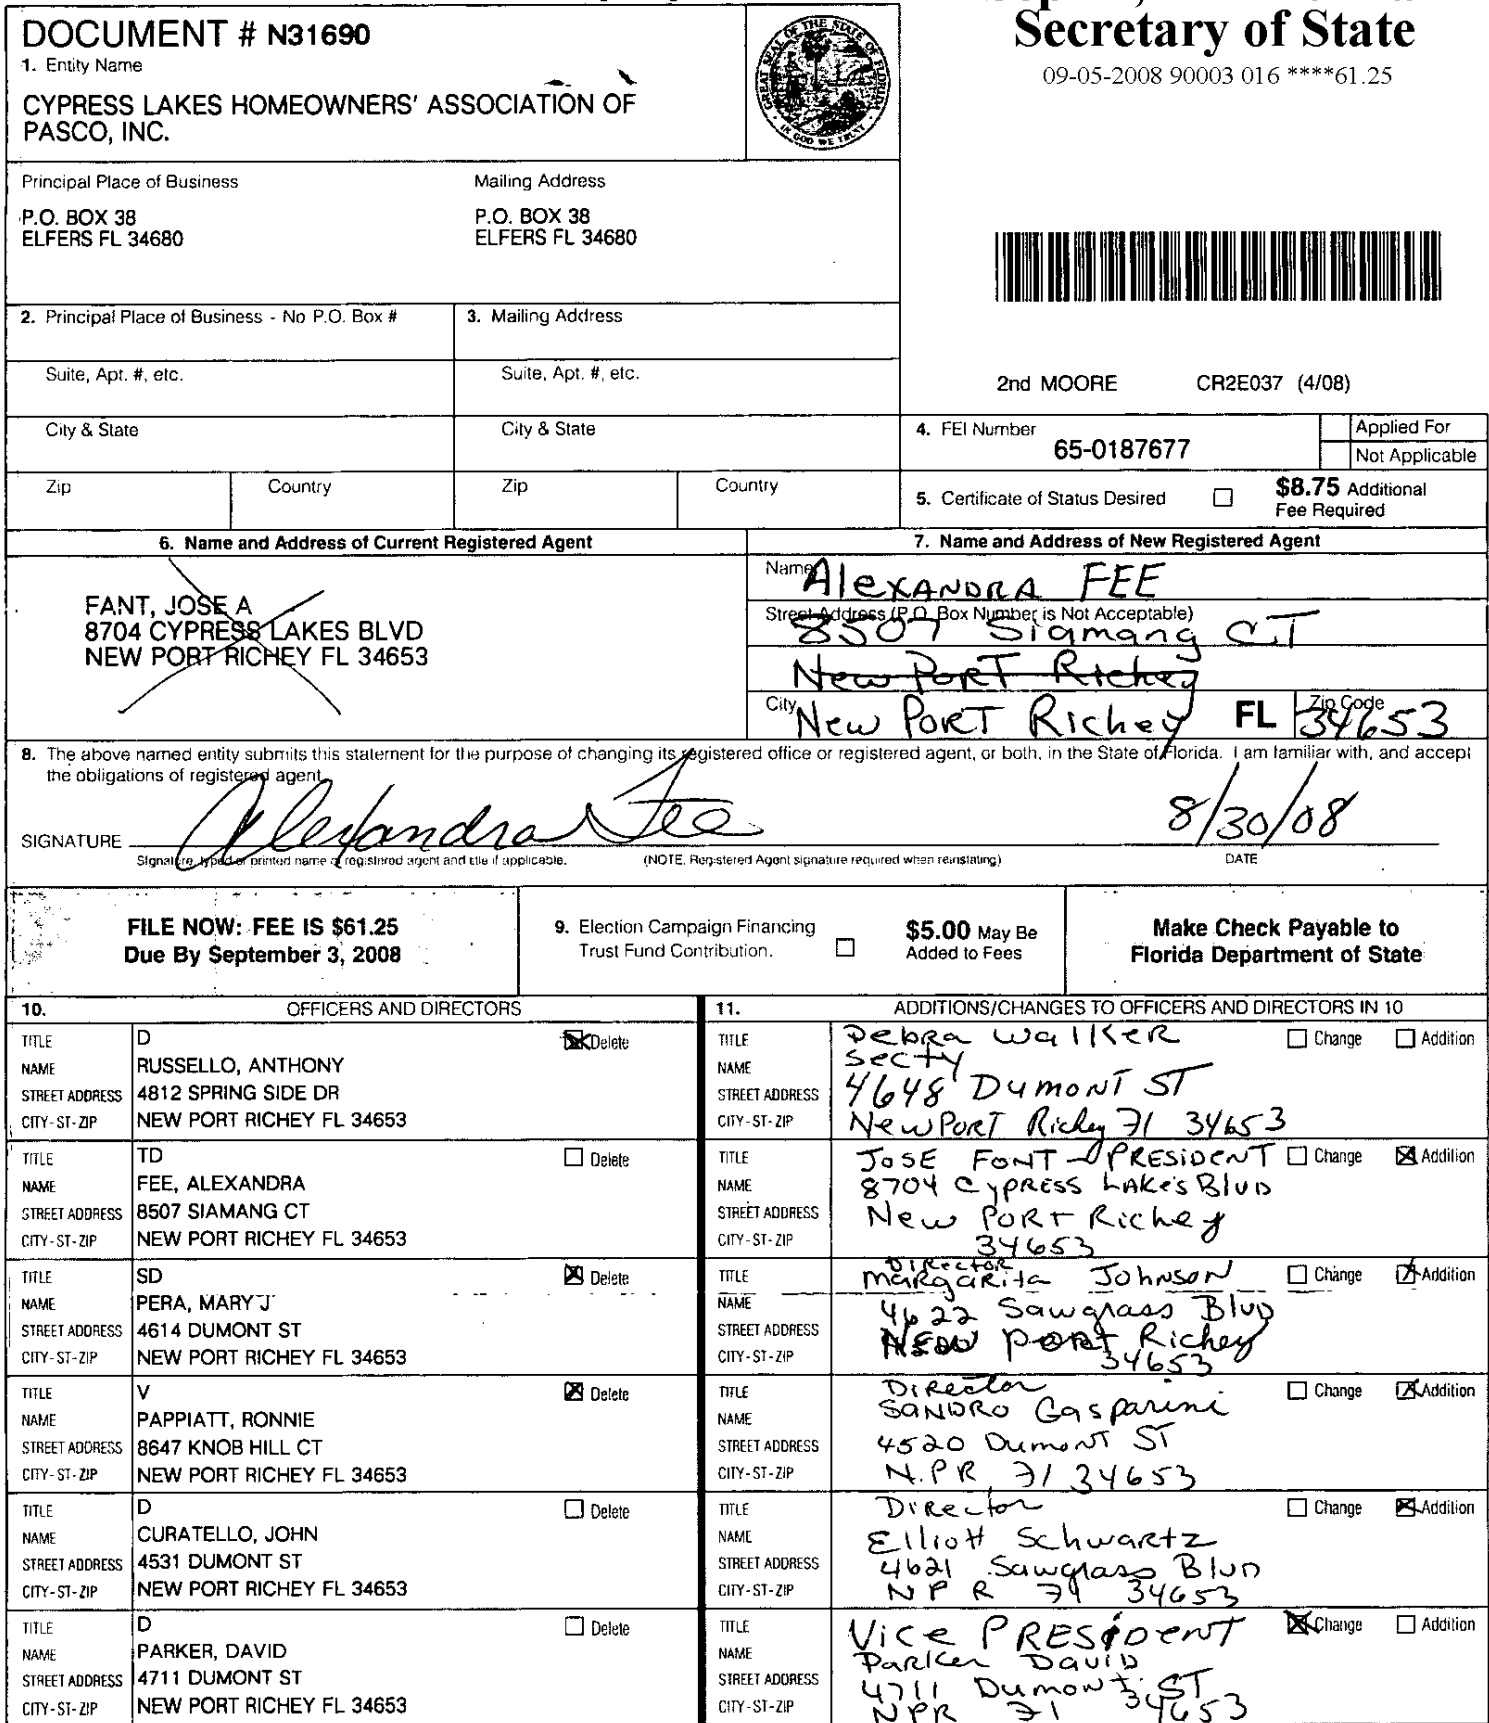 Secretary of State
09-05-2008 90003 016 ****61.25
DOCUMENT # N31690
1. Entity Name
CYPRESS LAKES HOMEOWNERS' ASSOCIATION OF
PASCO, INC.
Principal Place of Business Mailing Address
P.O. BOX 38 P.O. BOX 38
ELFERS FL 34680 ELFERS FL 34680
2. Principal Place of Business - No P.O. Box # 3. Mailing Address
Suite, Apt. #, etc. Suite, Apt. #, etc.
2nd MOORE CR2E037 (4/08)
City & State City & State
4. FEI Number
65-0187677
Applied For
Not Applicable
Zip Country Zip Country
5. Certificate of Status Desired $8.75 Additional
Fee Required
6. Name and Address of Current Registered Agent
FANT, JOSE A
8704 CYPRESS LAKES BLVD
NEW PORT RICHEY FL 34653
7. Name and Address of New Registered Agent
Name Alexandra FEE
Street Address (P.O. Box Number is Not Acceptable)
8507 Siamang CT
New Port Richey
City New PORT Richey FL Zip Code 34653
8. The above named entity submits this statement for the purpose of changing its registered office or registered agent, or both, in the State of Florida. I am familiar with, and accept
the obligations of registered agent
SIGNATURE Alexandra Fee 8/30/08
Signature, typed or printed name of registered agent and title if applicable. (NOTE. Registered Agent signature required when reinstating) DATE
FILE NOW: FEE IS $61.25
Due By September 3, 2008
9. Election Campaign Financing
Trust Fund Contribution.
$5.00 May Be
Added to Fees
Make Check Payable to
Florida Department of State
10. OFFICERS AND DIRECTORS
TITLE D Delete
NAME RUSSELLO, ANTHONY
STREET ADDRESS 4812 SPRING SIDE DR
CITY-ST-ZIP NEW PORT RICHEY FL 34653
TITLE TD Delete
NAME FEE, ALEXANDRA
STREET ADDRESS 8507 SIAMANG CT
CITY-ST-ZIP NEW PORT RICHEY FL 34653
TITLE SD Delete
NAME PERA, MARY J
STREET ADDRESS 4614 DUMONT ST
CITY-ST-ZIP NEW PORT RICHEY FL 34653
TITLE V Delete
NAME PAPPIATT, RONNIE
STREET ADDRESS 8647 KNOB HILL CT
CITY-ST-ZIP NEW PORT RICHEY FL 34653
TITLE D Delete
NAME CURATELLO, JOHN
STREET ADDRESS 4531 DUMONT ST
CITY-ST-ZIP NEW PORT RICHEY FL 34653
TITLE D Delete
NAME PARKER, DAVID
STREET ADDRESS 4711 DUMONT ST
CITY-ST-ZIP NEW PORT RICHEY FL 34653
11. ADDITIONS/CHANGES TO OFFICERS AND DIRECTORS IN 10
TITLE Debra Walker Change Addition
NAME Secty
STREET ADDRESS 4648 Dumont ST
CITY-ST-ZIP New PORT Richey Fl 34653
TITLE JOSE FONT - PRESIDENT Change Addition
NAME 8704 Cypress Lakes Blvd
STREET ADDRESS New PORT Richey
CITY-ST-ZIP 34653
Director
TITLE Margarita Johnson Change Addition
NAME 4622 Sawgrass Blvd
STREET ADDRESS New Port Richey
CITY-ST-ZIP 34653
TITLE Director Change Addition
NAME SANDRO Gasparini
STREET ADDRESS 4520 Dumont ST
CITY-ST-ZIP N.PR, Fl 34653
TITLE Director Change Addition
NAME Elliott Schwartz
STREET ADDRESS 4621 Sawgrass Blvd
CITY-ST-ZIP N P R Fl 34653
TITLE Vice PRESIDENT Change Addition
NAME Parker David
STREET ADDRESS 4711 Dumont ST
CITY-ST-ZIP NPR Fl 34653